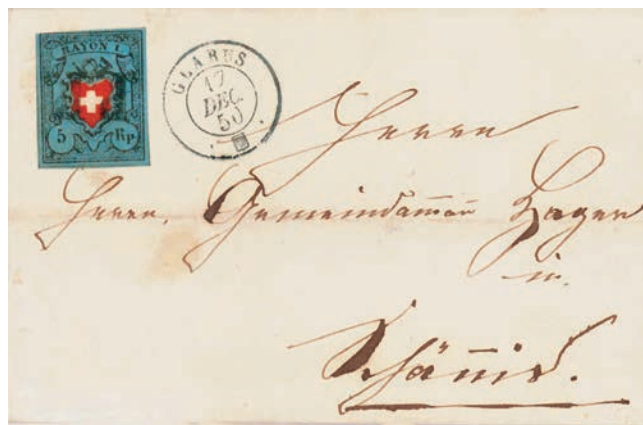 RAYON I.
5 Rp.
GLARUS
17
DEC
50
Herrn
Herrn, Gemeindamman Hager
in
Schännis.